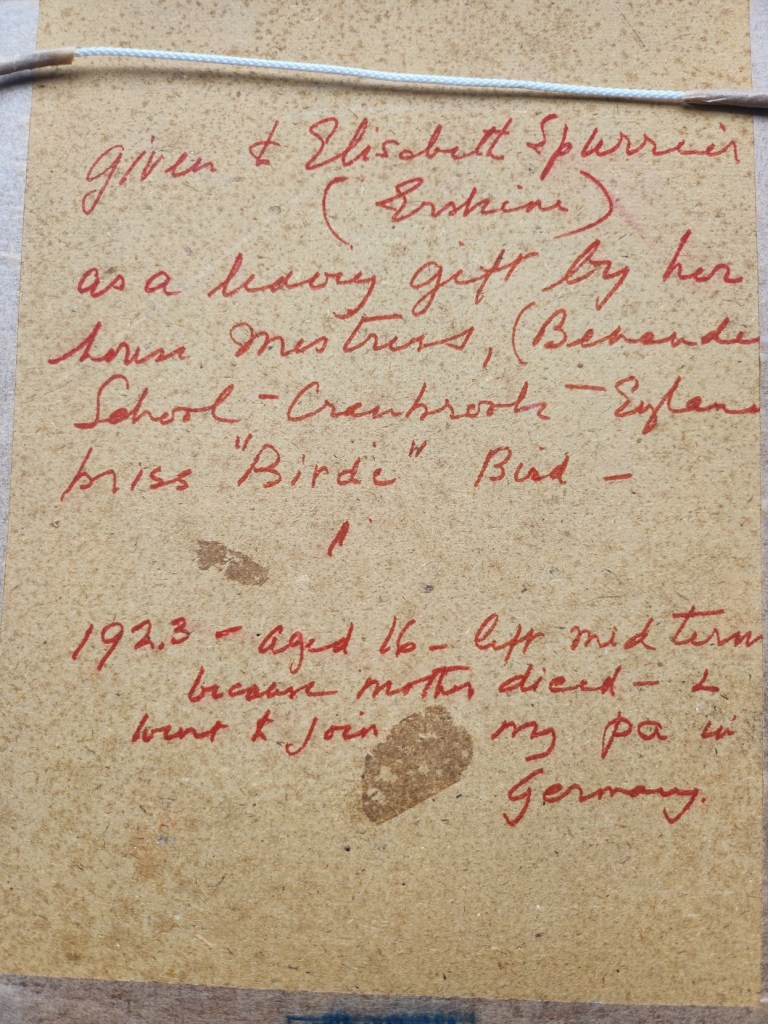 given to Elisabeth Spurrier
(Erskine)
as a leaving gift by her
house mistress, (Benenden
School - Cranbrook - England
Miss "Birdie" Bird -
1923 - aged 16 - left mid term
because mother died - &
went to join my pa in
Germany.